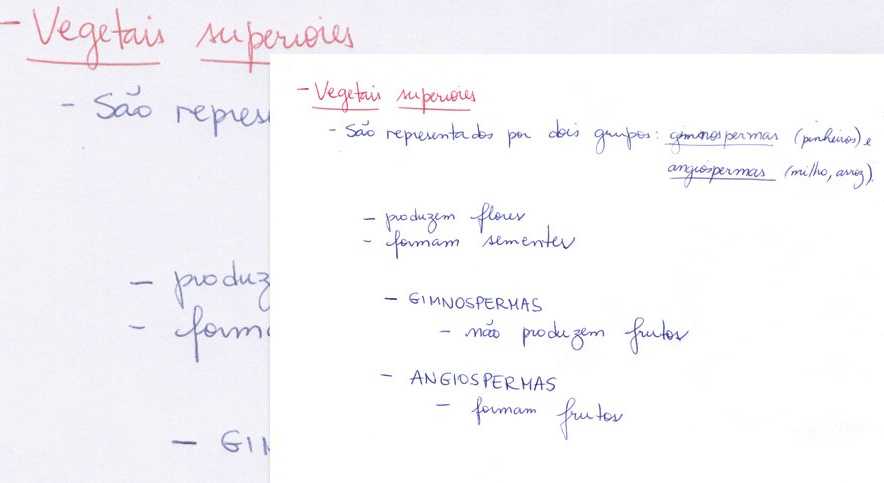 - Vegetais superiores
- São represe
- produz
- forma
- GIM
- Vegetais superiores
- São representados por dois grupos: gimnospermas (pinheiros) e
angiospermas (milho, arroz).
- produzem flores
- formam sementes
- GIMNOSPERMAS
- não produzem frutos
- ANGIOSPERMAS
- formam frutos